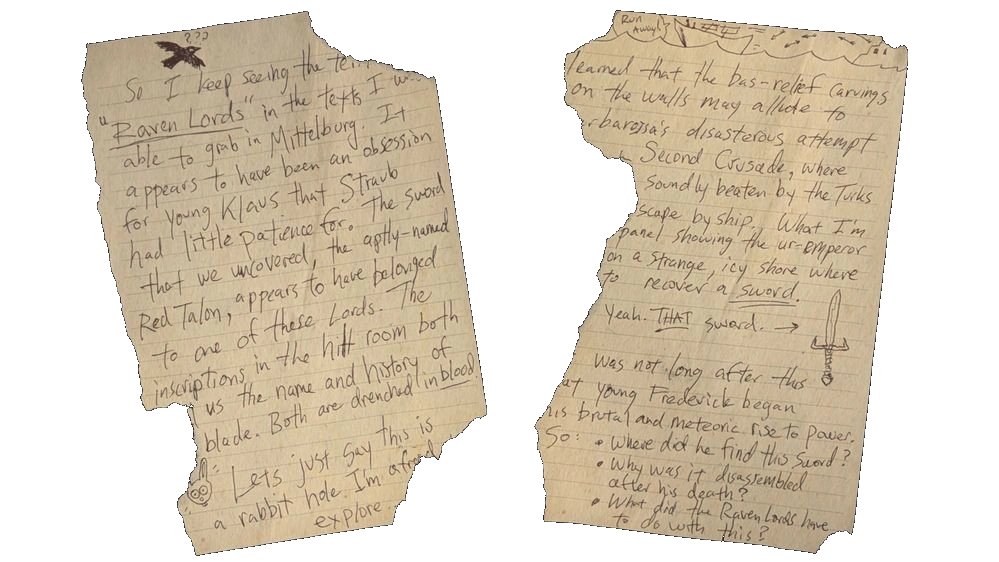 ???
So I keep seeing the
"Raven Lords" in the texts I
able to grab in Mittelburg. It
appears to have been an obsession
for young Klaus that Straub
had little patience for. The sword
that we uncovered, the aptly-named
Red Talon, appears to have belonged
to one of these Lords. The
inscriptions in the hilt room both
us the name and history of
blade. Both are drenched in blood
Lets just say this is
a rabbit hole I'm afraid
explore.
Run
Away!!
learned that the bas-relief carvings
on the walls may allude to
rbarossa's disastrous attempt
Second Crusade, where
soundly beaten by the Turks
scape by ship. What I'm
panel showing the ur-emperor
on a strange, icy shore where
to recover a sword.
Yeah. THAT sword. →
was not long after this
at young Frederick began
his brutal and meteoric rise to power.
So: • Where did he find this sword?
• Why was it disassembled
after his death?
• What did the Raven Lords have
to do with this?